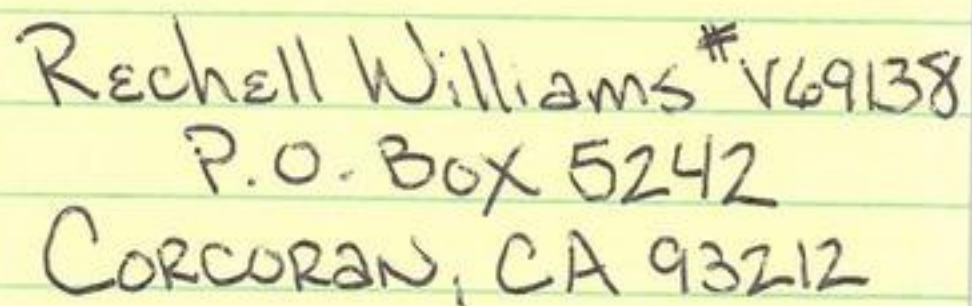 Rechell Williams #V69138
P.O. Box 5242
Corcoran, CA 93212